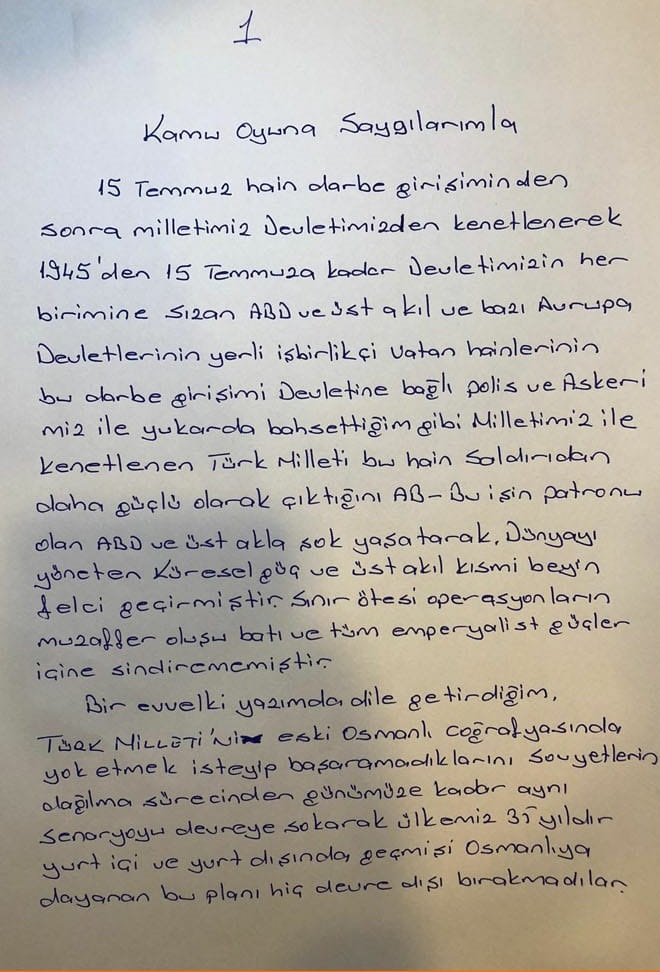 1
Kamu Oyuna Saygılarımla
15 Temmuz hain darbe girişiminden
sonra milletimiz Devletimizden kenetlenerek
1945'den 15 Temmuza kadar Devletimizin her
birimine sızan ABD ve üst akıl ve bazı Avrupa
Devletlerinin yerli işbirlikçi vatan hainlerinin
bu darbe girişimi Devletine bağlı polis ve Askeri
miz ile yukarda bahsettiğim gibi Milletimiz ile
kenetlenen Türk Milleti bu hain saldırıdan
daha güçlü olarak çıktığını AB-Bu işin patronu
olan ABD ve üst akla şok yaşatarak, Dünyayı
yöneten Küresel güç ve üst akıl kısmi beyin
felci geçirmiştir. Sınır ötesi operasyonların
muzaffer oluşu batı ve tüm emperyalist güçler
içine sindirememiştir.
Bir evvelki yazımda dile getirdiğim,
TÜRK MİLLETİ'Nİ eski Osmanlı coğrafyasında
yok etmek isteyip başaramadıklarını Sovyetlerin
dağılma sürecinden günümüze kadar aynı
senaryoyu devreye sokarak ülkemiz 35 yıldır
yurt içi ve yurt dışında, geçmişi Osmanlıya
dayanan bu planı hiç devre dışı bırakmadılar.